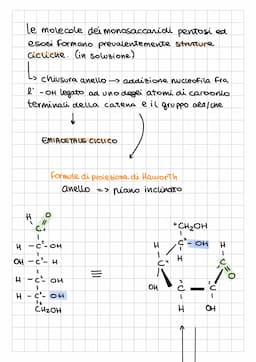 le molecole dei monosaccaridi pentosi ed
esosi formano prevalentemente strutture
cicliche. (in soluzione)
↳ chiusura anello → addizione nucleofila fra
l' -OH legato ad uno degli atomi di carbonio
terminali della catena e il gruppo aldeiche
EMIACETALE CICLICO
Formule di proiezione di Haworth
anello => piano inclinato
H O
C¹
H - C² - OH
OH - C³ - H
H - C⁴ - OH
H - C⁵ - OH
CH₂OH
≡
⁶CH₂OH
H C⁵ - OH H
C⁴ H C O
OH C C
H OH